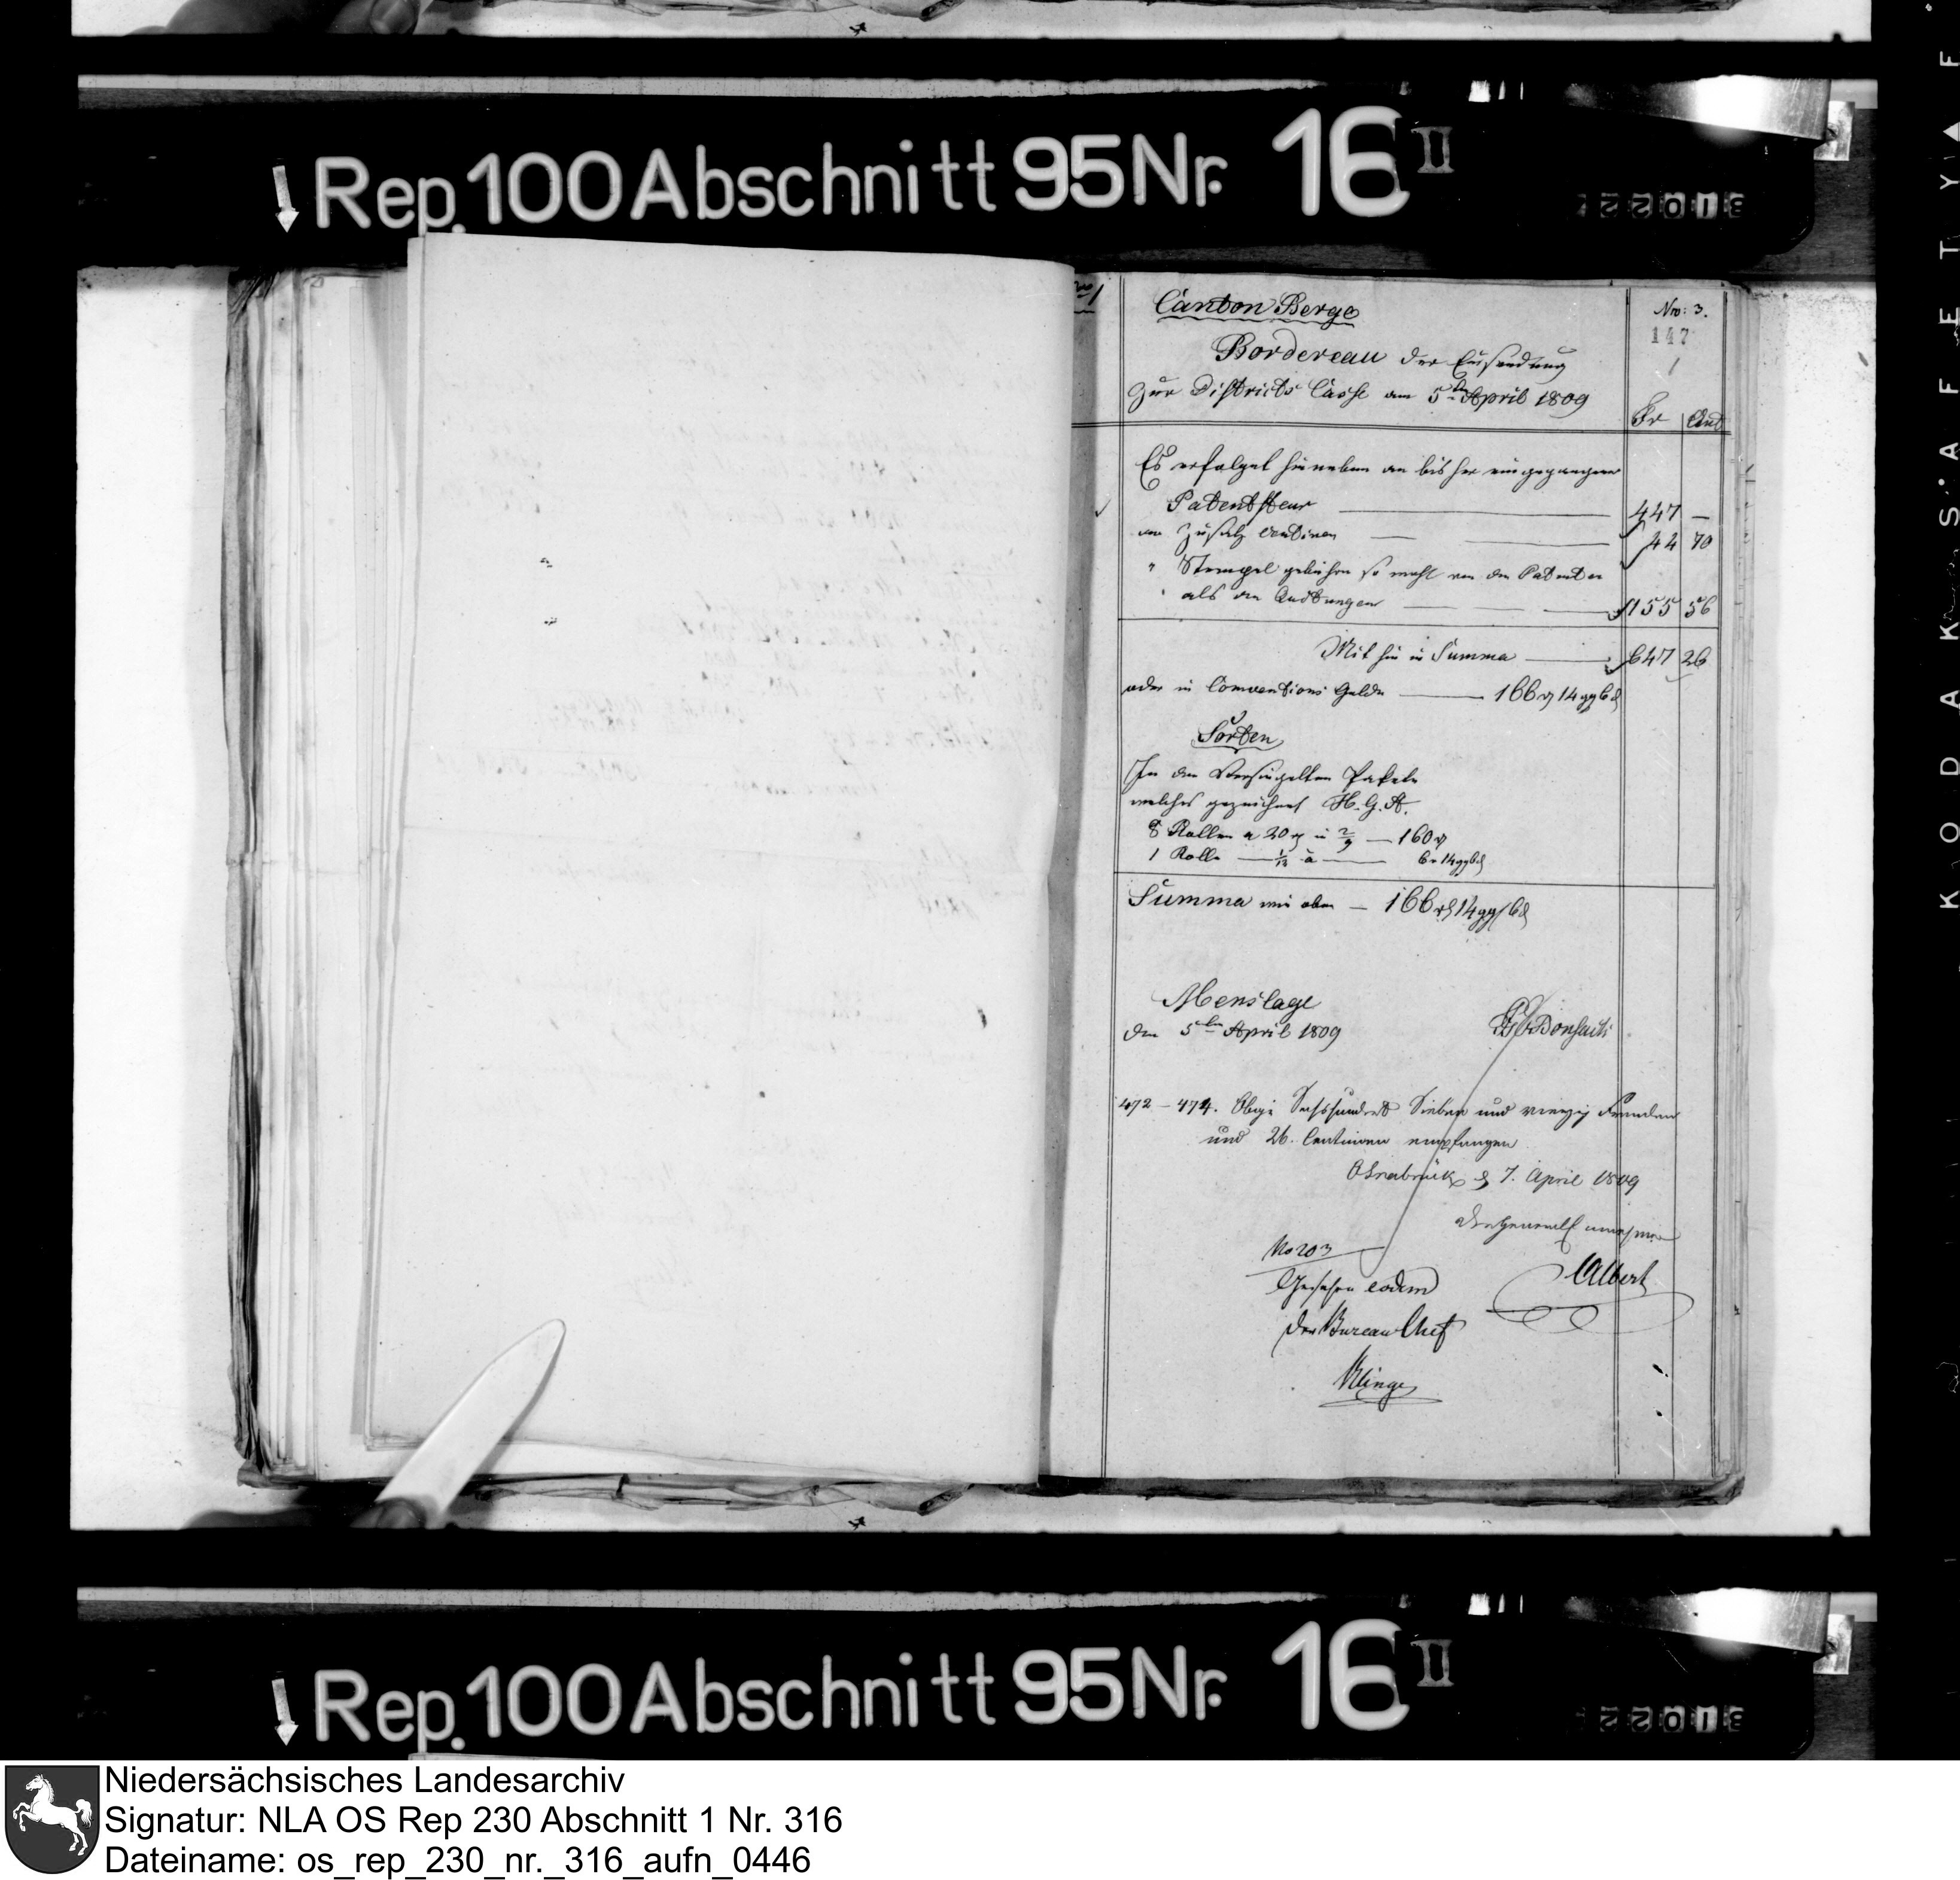 Rep. 100 Abschnitt 95 Nr. 16 II
Canton Berge
Nro: 3.
147
Bordereau der Einsendung
zur Districts Casse am 5ten April 1809
Fr Cent
Es erfolget hieneben an bis her eingegangener
Patentsteur 447 —
an Zusatz Centimen 44 70
" Stempel gebühren so wohl von den Patenten
als den Quitungen 155 56
Mit hin in Summa 647 26
oder in Conventions Gelde 166 14 gg 6
Sorten
In den Versiegelten Pakete
welches gezeichnet H. G. A.
8 Rollen a 20 in 2/3 — 160
1 Rolle — 1/12 a — 6 14 gg 6
Summa wie oben — 166 14 gg 6
Menslage
den 5ten April 1809
472 – 474. Obige Sechshundert Sieben und vierzig Franken
und 26. Centimen empfangen
Osnabrück d 7. April 1809
Der General
Albert
No 203
Gesehen eodem
Der Bureau Chef
Klinge
KODAK SAFETY
Rep. 100 Abschnitt 95 Nr. 16 II
Niedersächsisches Landesarchiv
Signatur: NLA OS Rep 230 Abschnitt 1 Nr. 316
Dateiname: os_rep_230_nr._316_aufn_0446